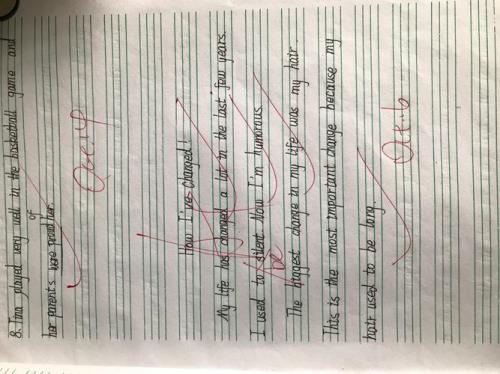 8. Tina played very well in the basketball game and
of
her parents were proud her.
Oct. 14
How I've changed!
My life has changed a lot in the last few years.
be
I used to silent. Now I'm humorous.
The biggest change in my life was my hair.
This is the most important change because my
hair used to be long.
Oct. 16